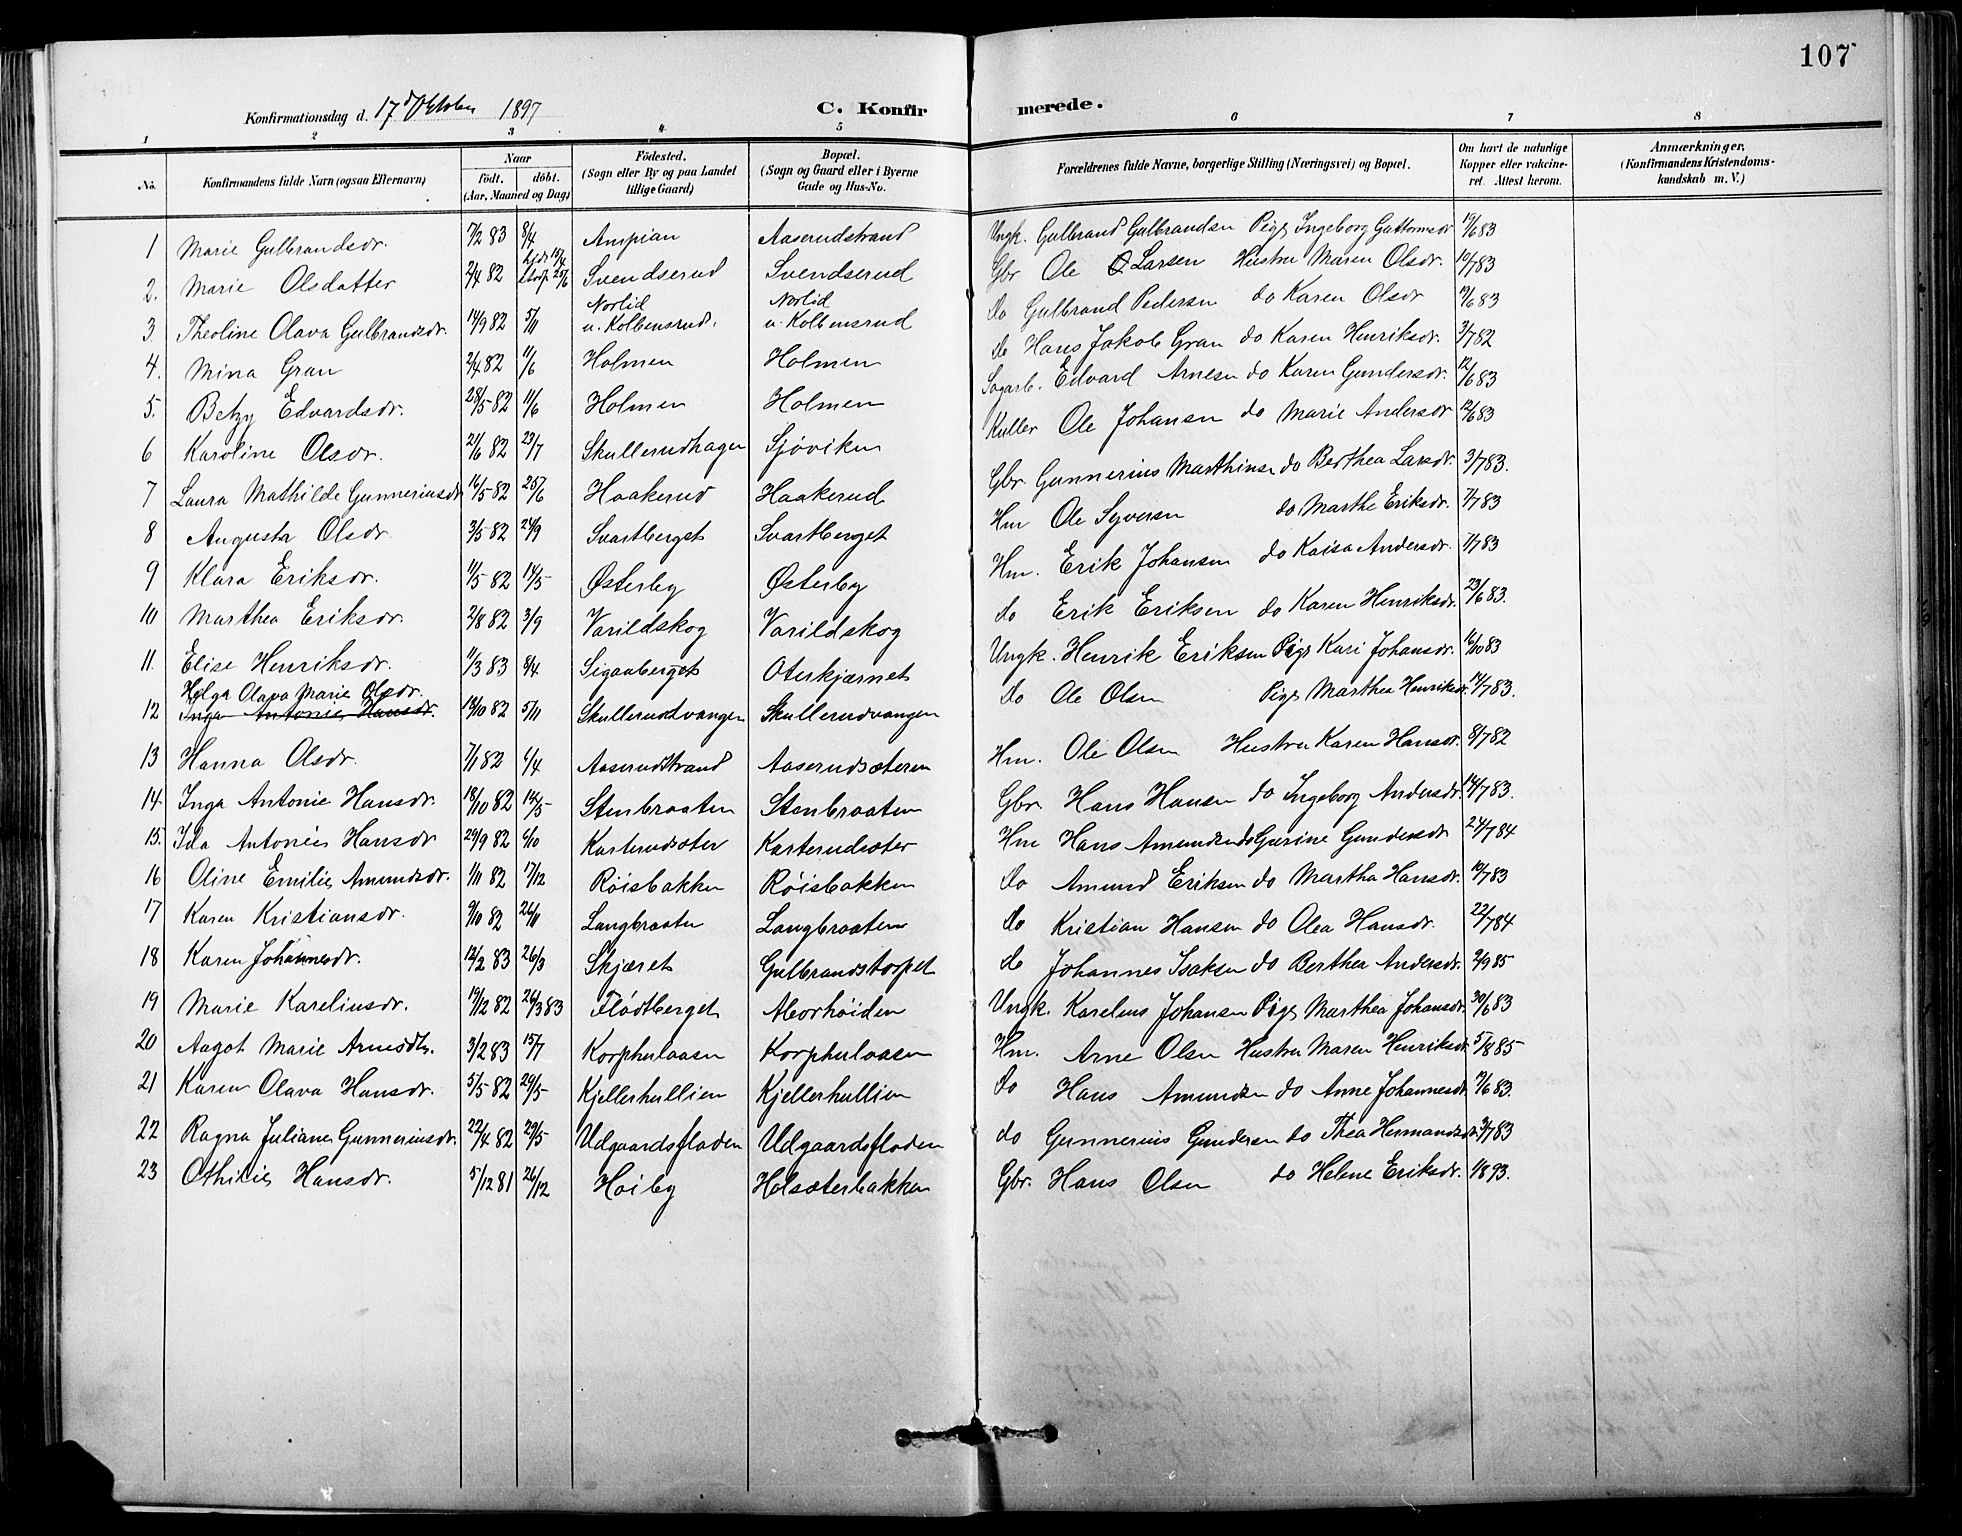 107
Konfirmationsdag d. 17d Oktober 1897 C. Konfirmerede.
1 2 3 4 5 6 7 8
No. Konfirmandens fulde Navn (ogsaa Efternavn) Naar født. døbt. (Aar, Maaned og Dag) Fødested. (Sogn eller By og paa Landet tillige Gaard) Bopæl. (Sogn og Gaard eller i Byerne Gade og Hus-No. Forældrenes fulde Navne, borgerlige Stilling (Næringsvei) og Bopæl. Om havt de naturlige Kopper eller vakcineret. Attest herom. Anmærkninger. (Konfirmandens Kristendomskundskab m. V.)
1 Marie Gulbrandsdr. 7/2 83 8/4 Ampian Aaserudstrand Ungk. Gulbrand Gulbrandsen Pige Ingeborg Guttormsdr 19/6 83
2. Marie Olsdatter 2/4 82 25/6 Svendserud Svendserud Gbr Ole Larsen Hustru Maren Olsdr. 10/7 83
3. Theoline Olava Gulbrandsdr. 14/9 82 5/11 Norlid u. Kolbensrud. Norlid u. Kolbensrud do Gulbrand Pedersen do Karen Olsdr 19/6 83
4. Mina Gran 2/4 82 11/6 Holmen Holmen do Hans Jakob Gran do Karen Henriksdr. 3/7 82
5. Betzy Edvardsdr. 28/5 82 11/6 Holmen Holmen Sagarb. Edvard Arnesen do Karen Gundersdr. 12/6 83
6 Karoline Olsdr. 21/6 82 23/7 Skullerudhagen Sjøviken Kuller Ole Johansen do Marie Andersdr 12/6 83
7 Laura Mathilde Gunneriusdr 16/5 82 25/6 Haakerud Haakerud Gbr Gunnerius Marthinsen do Berthea Larsdr. 3/7 83.
8 Augusta Olsdr. 3/5 82 24/9 Svartberget Svartberget Hm Ole Syversen do Marthe Eriksdr. 7/7 83
9 Klara Eriksdr. 11/5 82 14/5 Østerby Østerby Hm. Erik Johansen do Kaisa Andersdr. 7/7 83
10 Marthea Eriksdr. 2/8 82 3/9 Varildskog Varildskog do Erik Eriksen do Karen Henriksdr. 23/6 83.
11. Elise Henriksdr. 11/3 83 8/4 Sigaaberget Oterkjærnet Ungk. Henrik Eriksen Pige Kari Johansdr. 16/10 83
Helga Olava Marie Olsdr.
12 Inga Antonie Hansdr. 18/10 82 5/11 Skullerudvangen Skullerudvangen do Ole Olsen Pige Marthea Henriksdr. 14/7 83.
13 Hanna Olsdr. 7/1 82 6/4 Aaserudstrand Aaserudsæteren Hm. Ole Olsen Hustru Karen Hansdr. 8/7 82
14. Inga Antonie Hansdr. 18/10 82 14/5 Stenbraaten Stenbraaten Gbr. Hans Hansen do Ingeborg Andersdr. 14/7 83.
15. Ida Antonie Hansdr 29/9 82 6/10 Karterudsæter Karterudsæter Hm Hans Amundsen do Gurine Gundersdr 24/7 84
16 Oline Emilie Amundsdr. 1/11 82 17/12 Røisbakken Røisbakken do Amund Eriksen do Martha Hansdr. 10/7 83
17 Karen Kristiansdr. 9/10 82 26/11 Langbraaten Langbraaten do Kristian Hansen do Olea Hansdr. 22/7 84
18 Karen Johannesdr. 12/2 83 26/3 Skjæret Gulbrandstorpet do Johannes Isaksen do Berthea Andersdr. 2/9 85
19 Marie Kareliusdr. 19/12 82 26/3 83 Flødtberget Morhøiden Ungk. Karelius Johansen Pige Marthea Johansdr. 30/6 83
20 Aagot Marie Arnesdtr. 3/2 83 15/7 Korphulaasen Korphulaasen Hm. Arne Olsen Hustru Maren Henriksdr. 5/8 85
21 Karen Olava Hansdr. 5/5 82 29/5 Kjellerhullien Kjellerhullien do Hans Amundsen do Anne Johannesdr. 19/6 83.
22 Ragna Juliane Gunneriusdr. 22/4 82 29/5 Udgaardsfloden Udgaardsfloden do Gunnerius Gundersen do Thea Hermandsdr. 3/7 83
23 Othilie Hansdr. 5/12 81 26/12 Høiby Holsæterbakken Gbr. Hans Olsen do Helene Eriksdr. 1/8 93.